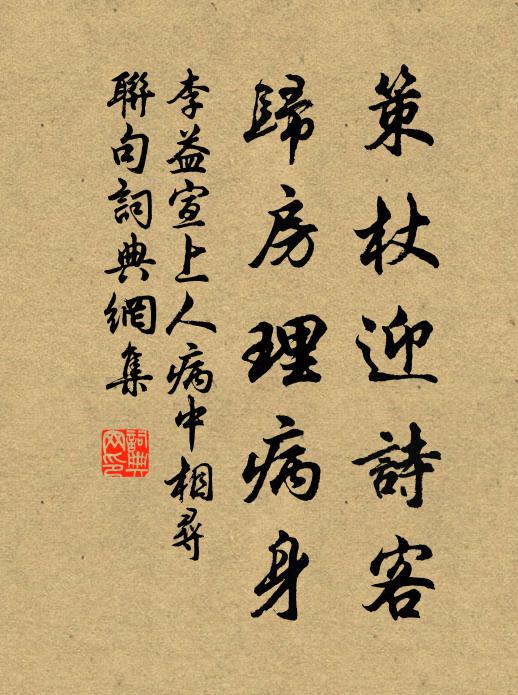 策杖迎詩客
歸房理病身
李益宣上人病中相尋
聯句詞典網集
詞典
网印